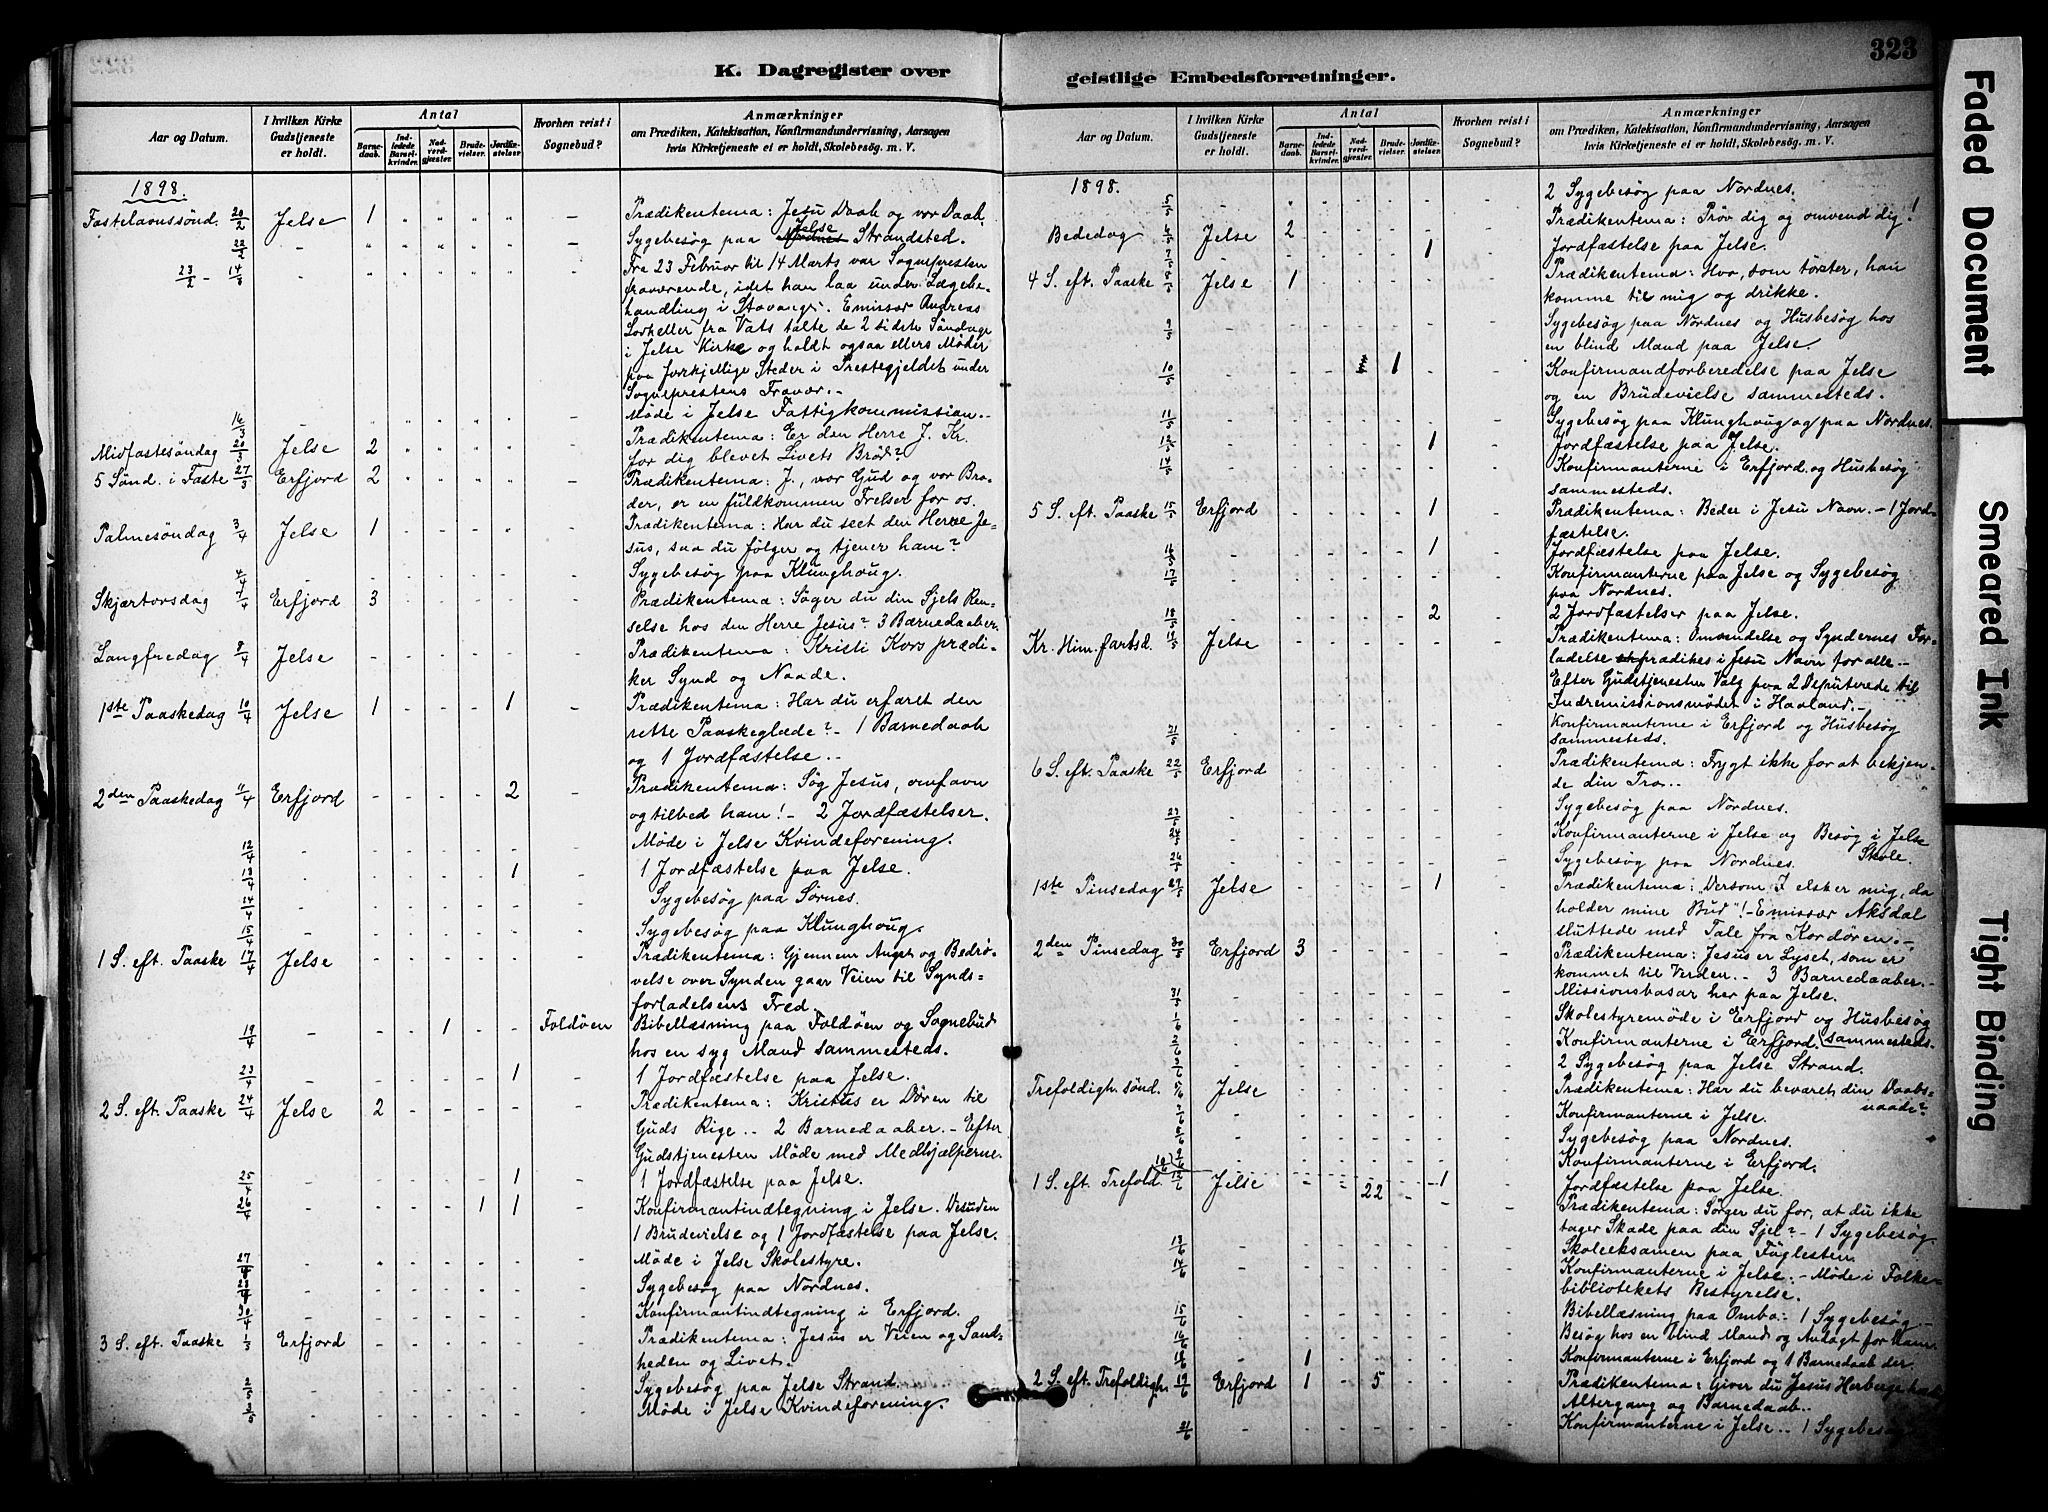 323
K. Dagregister over
geistlige Embedsforretninger.
Aar og Datum.
I hvilken Kirke Gudstjeneste er holdt.
Antal
Barnedaab.
Indledede Barselkvinder.
Nadverdgjæster.
Brudevielser.
Jordfæstelser.
Hvorhen reist i Sognebud?
Anmærkninger
om Prædiken, Katekisation, Konfirmandundervisning, Aarsagen
hvis Kirketjeneste ei er holdt, Skolebesøg. m. V.
1898.
Fastelavnssønd. 20/2 Jelse 1 " " " " - Prædikentema: Jesu Daab og vor Daab.
22/2 - " " " " " - Sygebesøg paa Nordnes Jelse Strandsted.
23/2 - 14/3 - Fra 23 Februar til 14 Marts var Sognepresten
fraværende, idet han laa under Lægebe-
handling i Stavanger. Emissær Andreas
fra Vats talte de 2 sidste Søndage
i Jelse Kirke og holdt ogsaa ellers Møder
paa forskjellige Steder i Prestegjeldet under
Sogneprestens Fravær.-
16/3 - " " " " " - Møde i Jelse Fattigkommission.-
Midfastesøndag 20/3 Jelse 2 " " " " - Prædikentema: Er den Herre J. Kr.
for dig blevet Livets Brød?
5 Sønd. i Faste 27/3 Erfjord 2 " " " " - Prædikentema: J., vor Gud og vor Bro-
der, er en fuldkommen Frelser for os.
Palmesøndag 3/4 Jelse 1 - - - - - Prædikentema: Har du seet den Herre Je-
sus, saa du følger og tjener ham?
4/4 - - - - - - - Sygebesøg paa Klunghoug.
Skjærtorsdag 7/4 Erfjord 3 - - - - - Prædikentema: Søger du din Sjels Ren-
selse hos den Herre Jesus? 3 Barnedaaber.
Langfredag 8/4 Jelse - - - - - - Prædikentema: Kristi Kors prædi-
ker Synd og Naade.
1ste Paaskedag 10/4 Jelse 1 - - - 1 - Prædikentema: Har du erfaret den
rette Paaskeglæde? - 1 Barnedaab
og 1 Jordfæstelse.-
2den Paaskedag 11/4 Erfjord - - - - 2 - Prædikentema: Søg Jesus, omfavn
og tilbed ham! - 2 Jordfæstelser.
12/4 - - - - - - - Møde i Jelse Kvindeforening.
13/4 - - - - - 1 - 1 Jordfæstelse paa Jelse.
14/4 - - - - - - - Sygebesøg paa Sørnes.
15/4 - - - - - - - Sygebesøg paa Klunghoug.
1 S. eft. Paaske 17/4 Jelse - - - - - - Prædikentema: Gjennem Angst og Bedrø-
velse over Synden gaar Veien til Synds-
forladelsens Fred.
19/4 - - - 1 - - Foldøen Bibellæsning paa Foldøen og Sognebud
hos en syg Mand sammesteds.
23/4 - - - - - 1 - 1 Jordfæstelse paa Jelse.
2 S. eft. Paaske 24/4 Jelse 2 - - - - - Prædikentema: Kristus er Døren til
Guds Rige.- 2 Barnedaaber.- Efter
Gudstjenesten Møde med Medhjælperne.
25/4 - - - - - 1 - 1 Jordfæstelse paa Jelse.
26/4 - - - - 1 1 - Konfirmantindtegning i Jelse. Desuden
1 Brudevielse og 1 Jordfæstelse paa Jelse.
27/4 - - - - - - - Møde i Jelse Skolestyre.
- - - - - - - Sygebesøg paa Nordnes.
30/4 - - - - - - - Konfirmantindtegning i Erfjord.
3 S. eft. Paaske Erfjord - - - - - - Prædikentema: Jesus er Veien og Sand-
heden og Livet.
2/5 - - - - - - - Sygebesøg paa Jelse Strand.
3/5 - - - - - - - Møde i Jelse Kvindeforening.
Aar og Datum.
I hvilken Kirke Gudstjeneste er holdt.
Antal
Barnedaab.
Indledede Barselkvinder.
Nadverdgjæster.
Brudevielser.
Jordfæstelser.
Hvorhen reist i Sognebud?
Anmærkninger
om Prædiken, Katekisation, Konfirmandundervisning, Aarsagen
hvis Kirketjeneste ei er holdt, Skolebesøg. m. V.
1898.
5/5 - - - - - - - 2 Sygebesøg paa Nordnes.
Bededag 6/5 Jelse 2 - - - - - Prædikentema: Prøv dig og omvend dig!
7/5 - - - - - 1 - Jordfæstelse paa Jelse.
4 S. eft. Paaske 8/5 Jelse 1 - - - - - Prædikentema: Hvo, som tørster, han
komme til mig og drikke.
9/5 - - - - - - - Sygebesøg paa Nordnes og Husbesøg hos
en blind Mand paa Jelse.
10/5 - - - 1 - - Konfirmandforberedelse paa Jelse
og en Brudevielse sammesteds.
11/5 - - - - - - - Sygebesøg paa Klunghoug og paa Nordnes.
- - - - - 1 - Jordfæstelse paa Jelse.
14/5 - - - - - - - Konfirmanterne i Erfjord og Husbesøg
sammesteds.
5 S. eft. Paaske 15/5 Erfjord - - - - 1 - Prædikentema: Beder i Jesu Navn. - 1 Jord-
fæstelse.
16/5 - - - - - 1 - Jordfæstelse paa Jelse.
17/5 - - - - - - - Konfirmanterne paa Jelse og Sygebesøg
paa Nordnes.
18/5 - - - - - 2 - 2 Jordfæstelser paa Jelse.
Kr. Him. fartsd. 19/5 Jelse - - - - - - Prædikentema: Omvendelse og Syndernes For-
ladelse prædikes i Jesu Navn for alle.-
Efter Gudstjenesten Valg paa 2 Deputerede til
Indremissionsmødet i Haaland.-
21/5 - - - - - - - Konfirmanterne i Erfjord og Husbesøg
sammesteds.
6 S. eft. Paaske 22/5 Erfjord - - - - - - Prædikentema: Frygt ikke for at bekjen-
de din Tro.-
23/5 - - - - - - - Sygebesøg paa Nordnes.
24/5 - - - - - - - Konfirmanterne i Jelse og Besøg i Jelse
Skole.
26/5 - - - - - - - Sygebesøg paa Nordnes.
1ste Pinsedag 29/5 Jelse - - - - 1 - Prædikentema: Dersom I elsker mig, da
holder mine Bud"! - Emissær Aksdal
sluttede med Tale fra Kordøren.-
2den Pinsedag 30/5 Erfjord 3 - - - - - Prædikentema: Jesus er Lyset, som er
kommet til Verden.- 3 Barnedaaber.-
31/5 - - - - - - - Missionsbasar her paa Jelse.
1/6 - - - - - - - Skolestyremøde i Erfjord og Husbesøg
sammesteds.
2/6 - - - - - - - Konfirmanterne i Erfjord.
3/6 - - - - - - - 2 Sygebesøg paa Jelse Strand.
Trefoldigh. sønd. 5/6 Jelse - - - - - - Prædikentema: Har du bevaret din Daabs-
naade?
7/6 - - - - - - - Konfirmanterne i Jelse.
8/6 - - - - - - - Sygebesøg paa Nordnes.
9/6 Konfirmanterne i Erfjord.
10/6 - - - - - 1 Jordfæstelse paa Jelse.
1 S. eft. Trefold. 12/6 Jelse - - 22 - - - Prædikentema: Sørger du for, at du ikke
tager Skade paa din Sjel? - 1 Sygebesøg.
13/6 - - - - - - - Skoleeksamen paa Fuglesten.
14/6 - - - - - - - Konfirmanterne i Jelse. - Møde i Folke-
bibliotekets Bestyrelse.
15/6 - - - - - - - Bibellæsning paa Ombo. 1 Sygebesøg.-
16/6 - - - - - - - Besøg hos en blind Mand og Andagt for ham.
18/6 - 1 - - - - - Konfirmanterne i Erfjord og 1 Barnedaab der.
2 S. eft. Trefoldigh. 19/6 Erfjord 1 - 5 - - - Prædikentema: Giver du Jesus Herberge
Altergang og Barnedaab.-
21/6 - - - - - - - Konfirmanterne i Jelse.- 1 Sygebesøg
Faded Document
Smeared Ink
Tight Binding